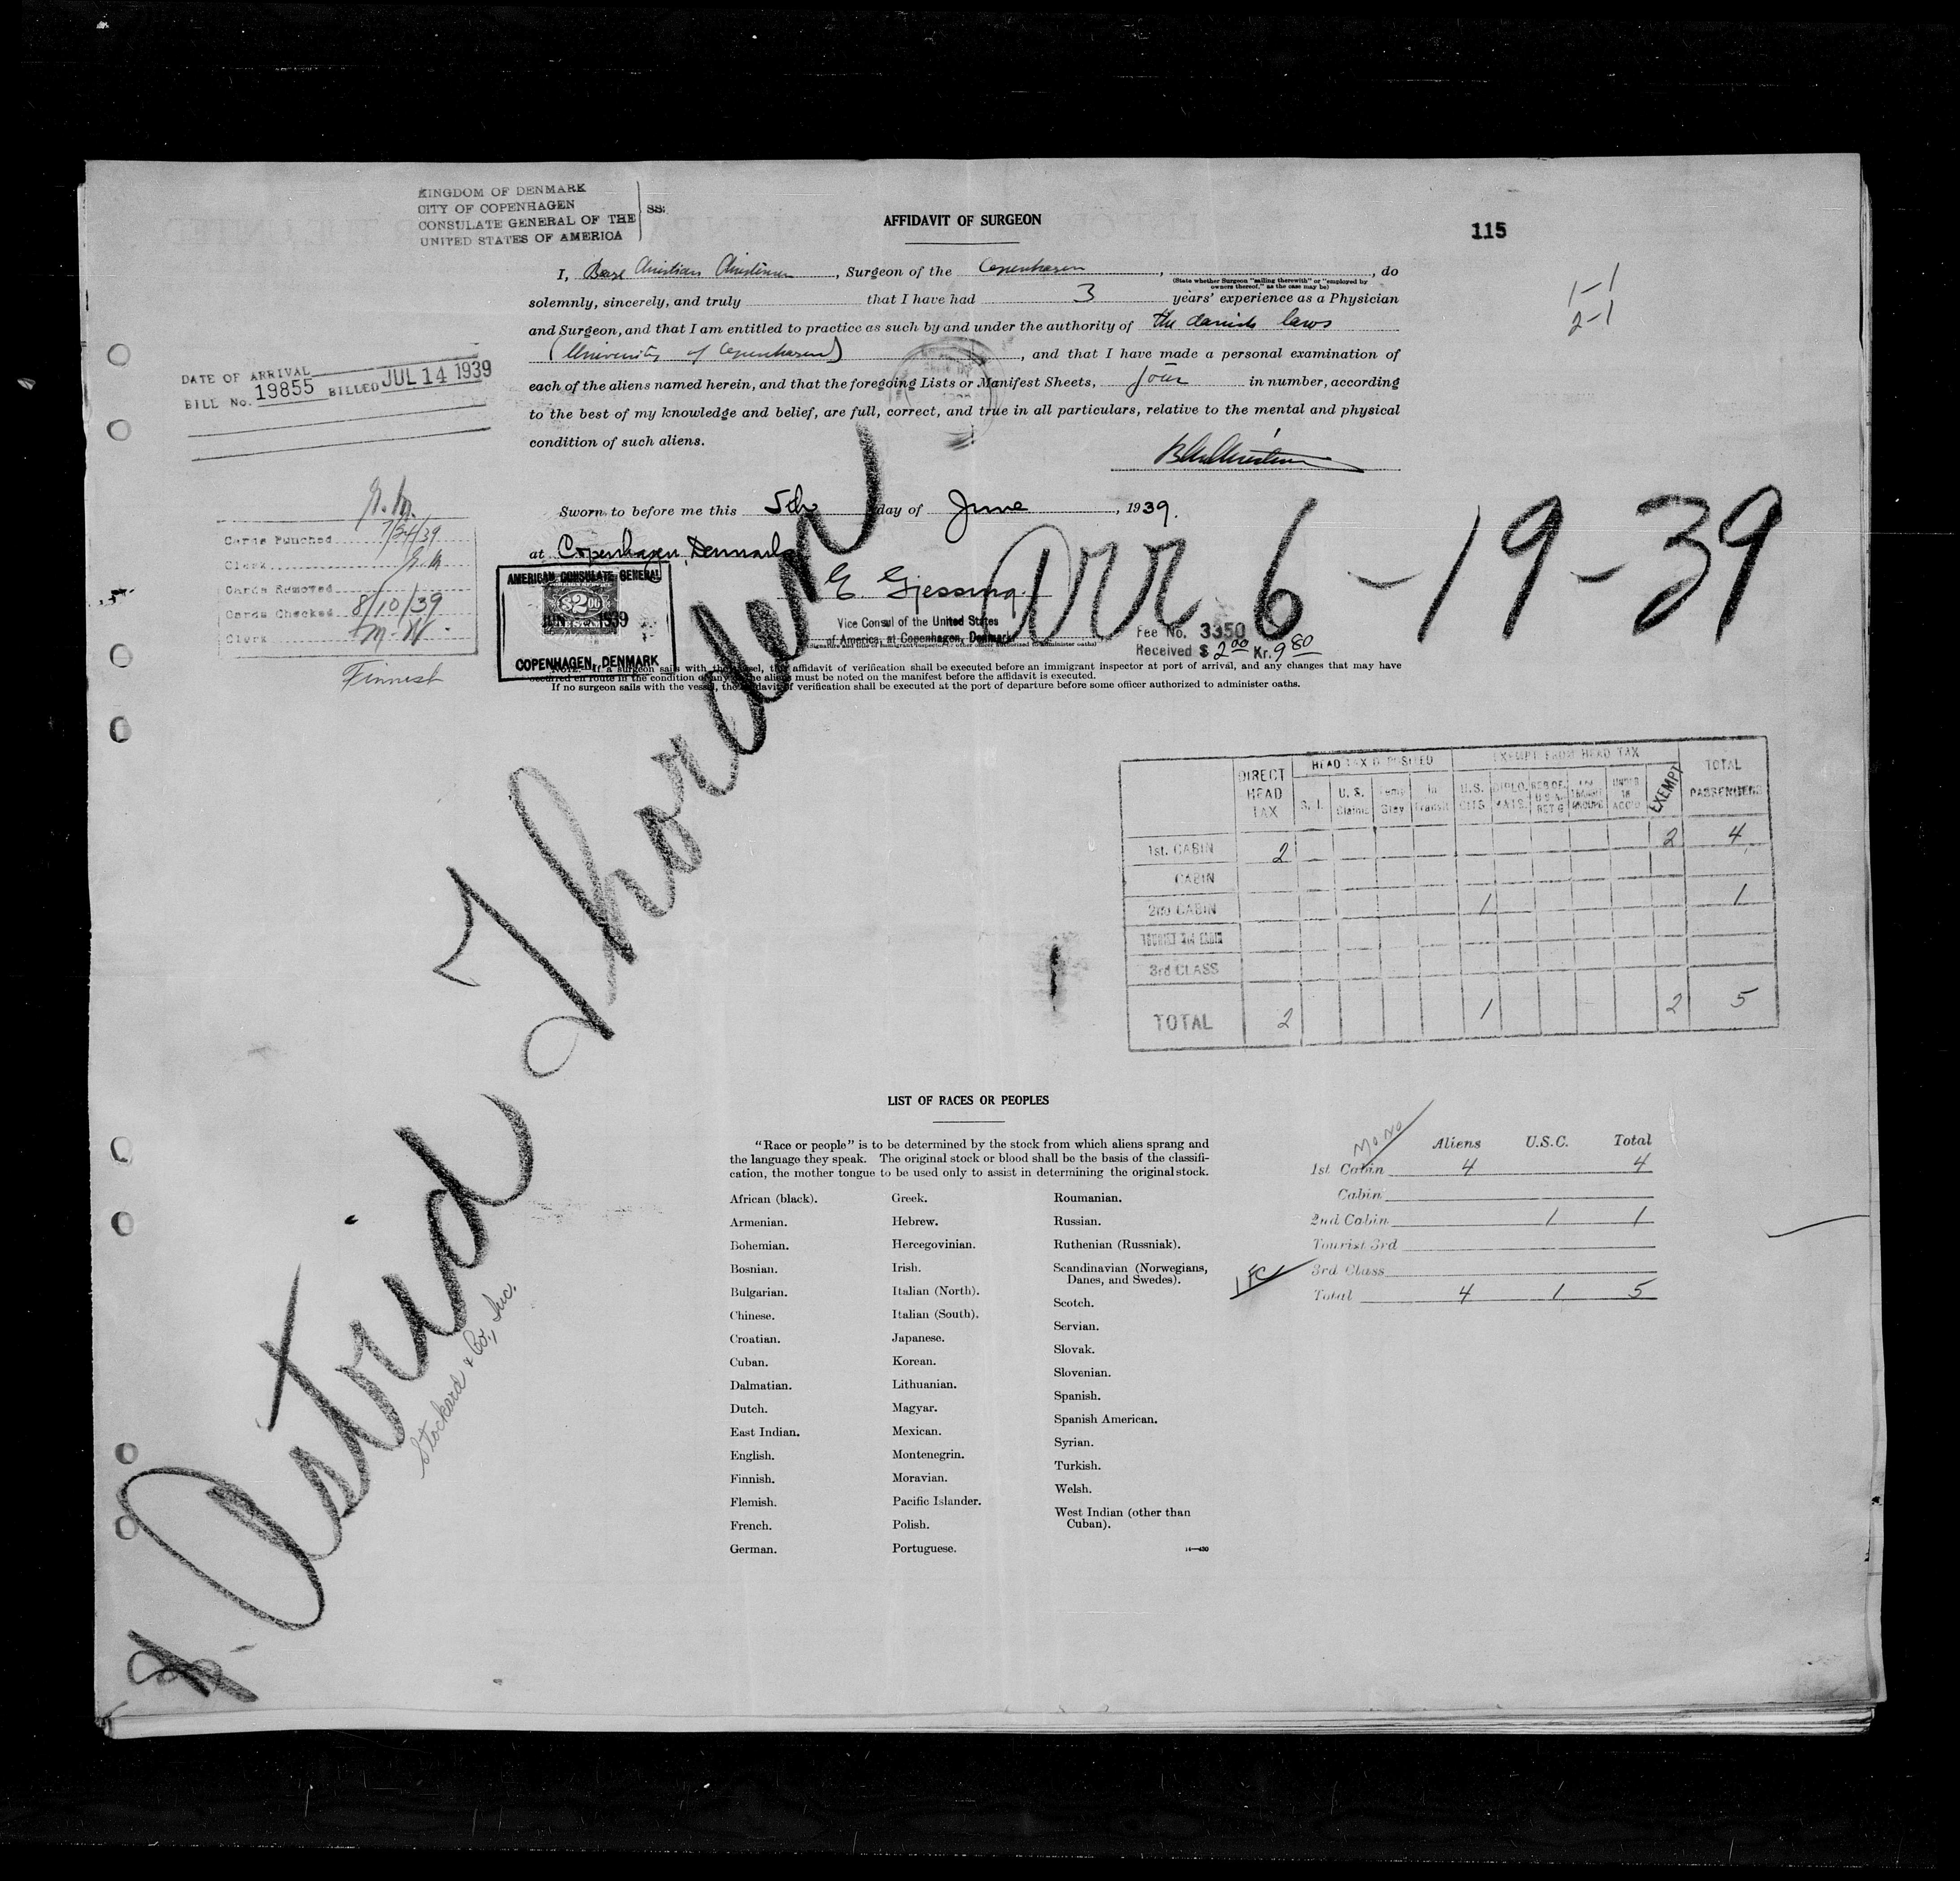 KINGDOM OF DENMARK
CITY OF COPENHAGEN
CONSULATE GENERAL OF THE
UNITED STATES OF AMERICA
SS:
AFFIDAVIT OF SURGEON
115
I, Christian Christensen, Surgeon of the Copenhagen, , do
(State whether Surgeon "sailing therewith" or "employed by
owners thereof," as the case may be)
solemnly, sincerely, and truly that I have had 3 years' experience as a Physician
and Surgeon, and that I am entitled to practice as such by and under the authority of the danish laws
(University of Copenhagen), and that I have made a personal examination of
each of the aliens named herein, and that the foregoing Lists or Manifest Sheets, four in number, according
to the best of my knowledge and belief, are full, correct, and true in all particulars, relative to the mental and physical
condition of such aliens.
1-1
2-1
DATE OF ARRIVAL
BILL No. 19855 BILLED JUL 14 1939
Sworn to before me this 5th day of June, 1939.
at Copenhagen, Denmark
E. Gjessing
Vice Consul of the United States
of America, at Copenhagen, Denmark
(Signature and title of immigrant inspector or other officer authorized to administer oaths)
Fee No. 3350
Received $ 2.00 Kr. 9.80
AMERICAN CONSULATE GENERAL
$2.00
JUN 1939
COPENHAGEN, DENMARK
Arr 6-19-39
Cards Punched 7/24/39
Clerk
Cards Removed
Cards Checked 8/10/39
Clerk M.W.
Finnish
NOTE.—If a surgeon sails with the vessel, this affidavit of verification shall be executed before an immigrant inspector at port of arrival, and any changes that may have
occurred en route in the condition of any of the aliens must be noted on the manifest before the affidavit is executed.
If no surgeon sails with the vessel, the affidavit of verification shall be executed at the port of departure before some officer authorized to administer oaths.
Astrid Thorden
Stockard & Co., Inc.
DIRECT HEAD TAX
HEAD TAX DEPOSITED
S. I.
U. S. Claims
Temp Stay
In Transit
EXEMPT FROM HEAD TAX
U.S. CITS.
DIPLO. MATS.
RES OF U S A RET G
UNDER 16 ACCPD
EXEMPT
TOTAL PASSENGERS
1st. CABIN 2 2 4
CABIN
2nd CABIN 1 1
TOURIST 3rd CABIN
3rd CLASS
TOTAL 2 1 2 5
LIST OF RACES OR PEOPLES
"Race or people" is to be determined by the stock from which aliens sprang and
the language they speak. The original stock or blood shall be the basis of the classifi-
cation, the mother tongue to be used only to assist in determining the original stock.
African (black).
Armenian.
Bohemian.
Bosnian.
Bulgarian.
Chinese.
Croatian.
Cuban.
Dalmatian.
Dutch.
East Indian.
English.
Finnish.
Flemish.
French.
German.
Greek.
Hebrew.
Hercegovinian.
Irish.
Italian (North).
Italian (South).
Japanese.
Korean.
Lithuanian.
Magyar.
Mexican.
Montenegrin.
Moravian.
Pacific Islander.
Polish.
Portuguese.
Roumanian.
Russian.
Ruthenian (Russniak).
Scandinavian (Norwegians,
Danes, and Swedes).
Scotch.
Servian.
Slovak.
Slovenian.
Spanish.
Spanish American.
Syrian.
Turkish.
Welsh.
West Indian (other than
Cuban).
14—430
Aliens U.S.C. Total
1st Cabin 4 4
Cabin
2nd Cabin 1 1
Tourist 3rd
3rd Class
Total 4 1 5